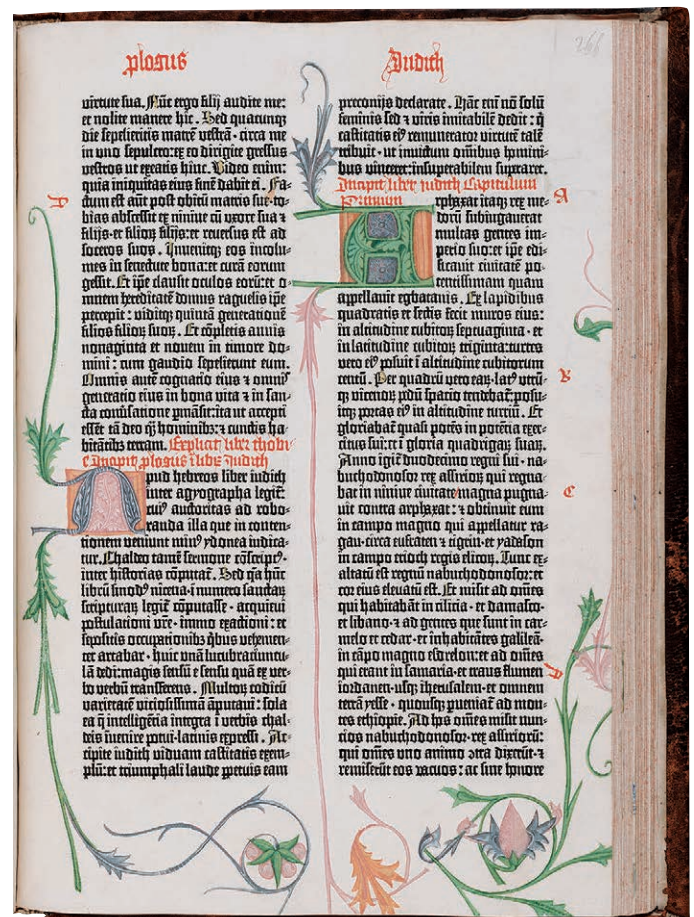 plogus
Judith
266
virtute sua. Nūc ergo filij audite me:
et nolite manere hic. Sed quacunq
die sepelieritis matrē vestrā · circa me
in uno sepulcro: ex eo dirigite gressus
vestros ut exeatis hinc. Video enim:
quia iniquitas eius finē dabit ei. Fa-
b
dum est aūt post obitū matris sue · to-
bias abscessit ex ninive cū uxore sua ⁊
filijs · et filioꝝ filijs: et reversus est ad
soceros suos. Invenitqꝫ eos incolu-
mes in senectute bona: et curā eorum
gessit. Et ip̄e clausit oculos eorū: et o-
mnem hereditatē domus raguelis ip̄e
percepit: viditqꝫ quintā generationē
filios filioꝝ suoꝝ. Et cōpletis annis
nonaginta et novem in timore do-
mini: cum gaudio sepelierunt eum.
Omnis autē cognatio eius ⁊ omnis
generatio eius in bona vita ⁊ in san-
da cōversatione pmāsit: ita ut accepti
essēt tā deo qꝫ hominibꝫ: ⁊ cunctis ha-
bitātibꝫ terram. Explicit liber thobi-
e Incipit plogus ī librū Judith
Apud hebreos liber iudith
inter agyographa legit̄:
cuiꝰ auctoritas ad robo-
randa illa que in conten-
tionem veniunt minꝰ ydonea iudica-
tur. Chaldeo tamē sermone cōscriptꝰ·
inter historias cōputat̄. Sed qa hūc
librū sinodꝰ nicena · ī numero sanctaꝝ
scripturaꝝ legit̄ cōputasse · acquievi
postulationi vr̄e · immo exactioni: et
sepositis occupationibꝫ qbus vehemen-
ter artabar · huic unā lucubratiuncu-
lā dedi: magis sensū e sensu quā ex ver-
bo verbū transferens. Multoꝝ codicū
varietatē viciosissimā āputavi: sola
ea q̄ intelligēcia integra ī verbis chal-
deis invenire potui · latinis expressi. Ac-
cipite iudith viduam castitatis exem-
plū: et triumphali laude ppetuis eam
preconijs declarate. Hāc eni nō solū
feminis sed ⁊ viris imitabilē dedit: q
castitatis eiꝰ remunerator virtutē talē
tribuit · ut invictum omībus homini-
bus vinceret: insuperabilem superaret.
Incipit liber iudith Capitulum
Primum
Arphaxat itaqꝫ rex me-
A
dorū subiugaverat
multas gentes im-
perio suo: et ip̄e edi-
ficavit civitatē po-
tentissimam quam
appellavit egbatanis. Ex lapidibus
quadratis et sectis fecit muros eius:
in altitudine cubitoꝝ septuaginta · et
in latitudine cubitoꝝ triginta: turres
vero eiꝰ posuit ī altitudine cubitorum
centū. Per quadrū vero eaꝝ · latꝰ utrū-
B
qꝫ vicenoꝝ pdū spacio tendebat̄: posu-
itqꝫ portas eiꝰ in altitudine turriū. Et
gloriabat̄ quasi potēs in potētia exer-
citus sui: et ī gloria quadrigaꝝ suaꝝ.
Anno igit̄ duodecimo regni sui · na-
buchodonosor rex assirioꝝ qui regna-
bat in ninive civitate magna pugna-
C
vit contra arphaxat: ⁊ obtinuit eum
in campo magno qui appellatur ra-
gau · circa eufraten ⁊ tigrin · et yadason
in campo erioch regis elicoꝝ. Tunc ex-
altatū est regnū nabuchodonosor: et
cor eius elevatū est. Et misit ad om̄es
qui habitabāt in cilicia · et damasco
et libano · ⁊ ad gentes que sunt in car-
melo et cedar · et inhabitātes galileā
in cāpo magno esdrelon: et ad om̄es
qui erant in samaria · et trans flumen
D
iordanen · usqꝫ iherusalem · et omnem
terrā yesse · quousqꝫ pveniat̄ ad mon-
tes ethiopie. Ad hos om̄es misit nun-
cios nabuchodonosor · rex assiriorū:
qui om̄es uno animo ɔtra dixerūt · ⁊
remiserūt eos vacuos: ac sine honore